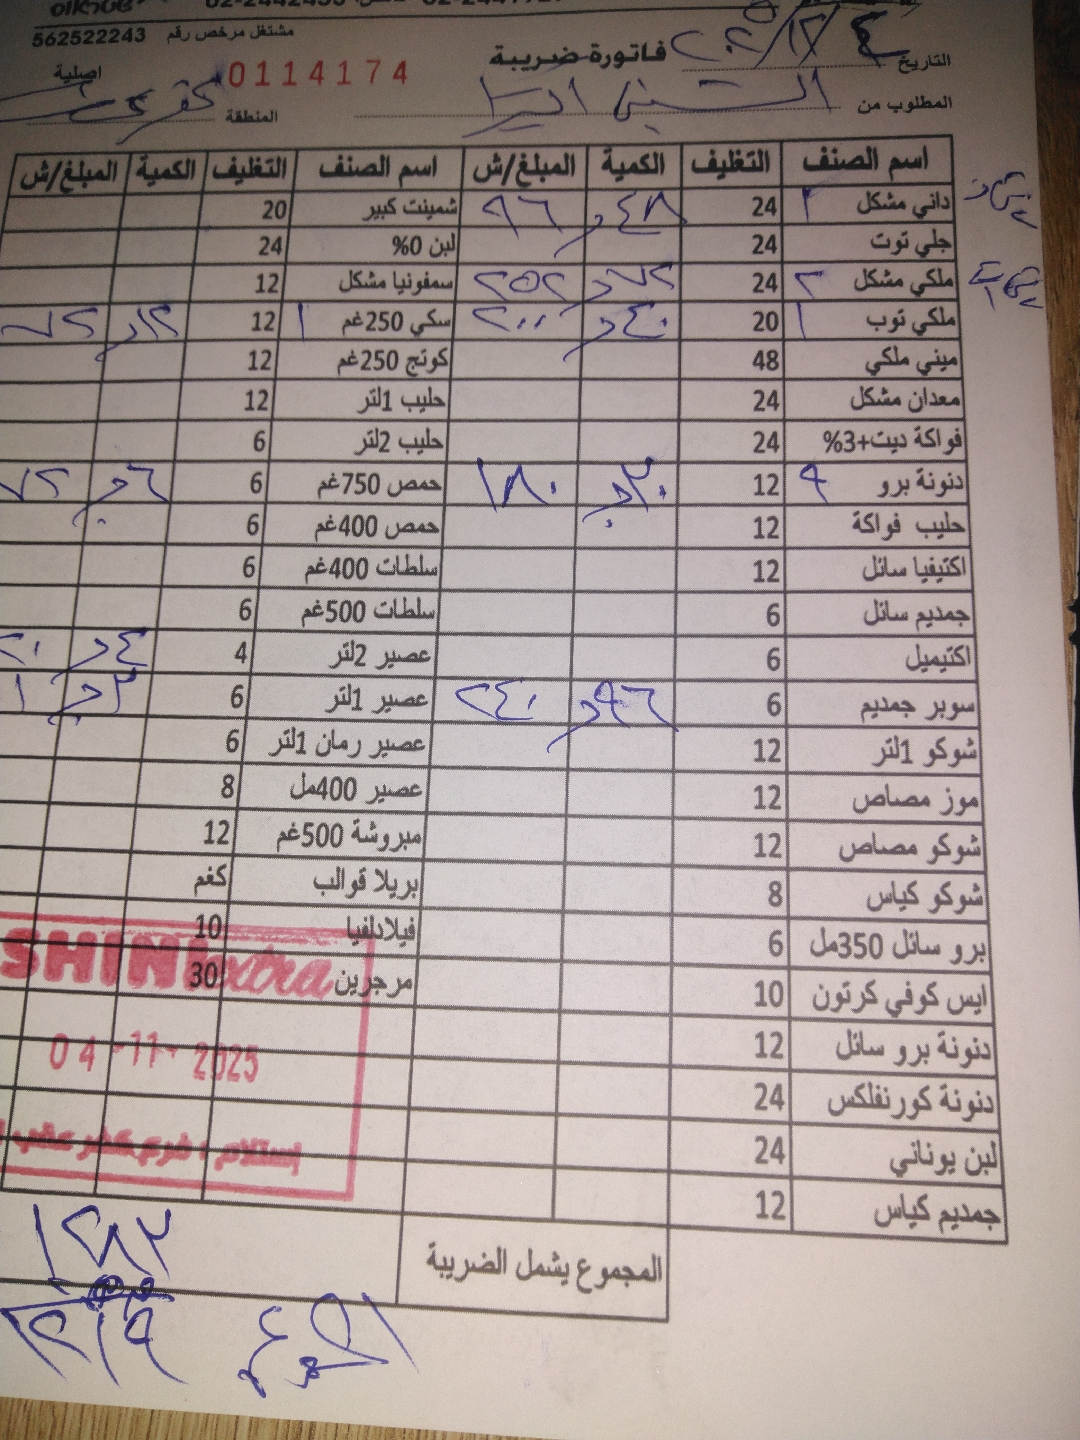 مشتغل مرخص رقم 562522243
التاريخ ٤ / ١٢ / ٢٠٢٥ فاتورة ضريبة 0114174 اصلية
المطلوب من الشيني اكسترا المنطقة كفر عقب
اسم الصنف التغليف الكمية المبلغ/ش اسم الصنف التغليف الكمية المبلغ/ش
داني مشكل ٢ 24 ٤٨ ٩٦ شمينت كبير 20
جلي توت 24 لبن 0% 24
ملكي مشكل ٣ 24 ٧٢ ٢٥٢ سمفونيا مشكل 12
ملكي توب ١ 20 ٤٠ ٢٠٠ سكي 250غم ١ 12 ١٢ ٧٢
ميني ملكي 48 كوتج 250غم 12
معدان مشكل 24 حليب 1لتر 12
فواكة ديت+3% 24 حليب 2لتر 6
دنونة برو ٩ 12 ٣٠ ١٨٠ حمص 750غم 6 ٦ ٧٢
حليب فواكة 12 حمص 400غم 6
اكتيفيا سائل 12 سلطات 400غم 6
جمديم سائل 6 سلطات 500غم 6
اكتيميل 6 عصير 2لتر 4 ٤
سوبر جمديم 6 ٩٦ ٢٤٠ عصير 1لتر 6 ٣
شوكو 1لتر 12 عصير رمان 1لتر 6
موز مصاص 12 عصير 400مل 8
شوكو مصاص 12 مبروشة 500غم 12
شوكو كياس 8 بريلا قوالب كغم
برو سائل 350مل 6 فيلادلفيا 10
ايس كوفي كرتون 10 مرجرين 30
دنونة برو سائل 12
دنونة كورنفلكس 24
لبن يوناني 24
جمديم كياس 12
SHINI extra
04 -11- 2025
إستلام : فرع كفر عقب
المجموع يشمل الضريبة
المجموع